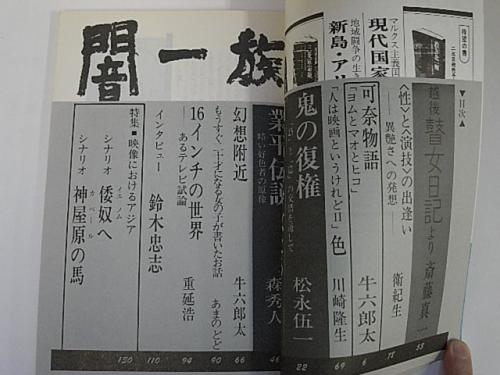 待望の書
マルクス主義国
現代国家
地域闘争の生き
新島・ア
▼目次▲
越後瞽女日記より 斎藤真一 53
〈性〉と〈演技〉の出逢い
―異艶さへの発想 衛紀生 78
可奈物語
「ヨムとマオとヒコ」 牛六郎太 6
「人は映画というけれどⅡ」色 川崎隆生 69
鬼の復権
松永伍一 22
闇一族
業平伝説
暗い好色者の原像 森秀人 46
幻想附近 牛六郎太 66
もうすぐ二十才になる女の子が書いたお話 あまのとど 90
16インチの世界
あるテレビ試論 重延浩 94
インタビュー 鈴木忠志 110
特集・映像におけるアジア
シナリオ 倭奴へ
イエノム
シナリオ 神屋原の馬
カベール
120